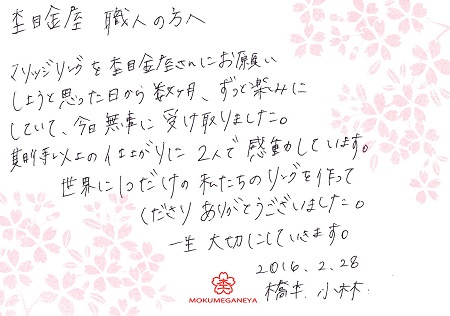 杢目金屋 職人の方へ
マリッジリングを杢目金屋さんにお願い
しようと思った日から数ヶ月、ずっと楽みに
していて、今日無事に受け取りました。
期待以上の仕上がりに2人で感動しています。
世界に1つだけの私たちのリングを作って
くださり ありがとうございました。
一生大切にしていきます。
2016.2.28
橋本 小林
MOKUMEGANEYA